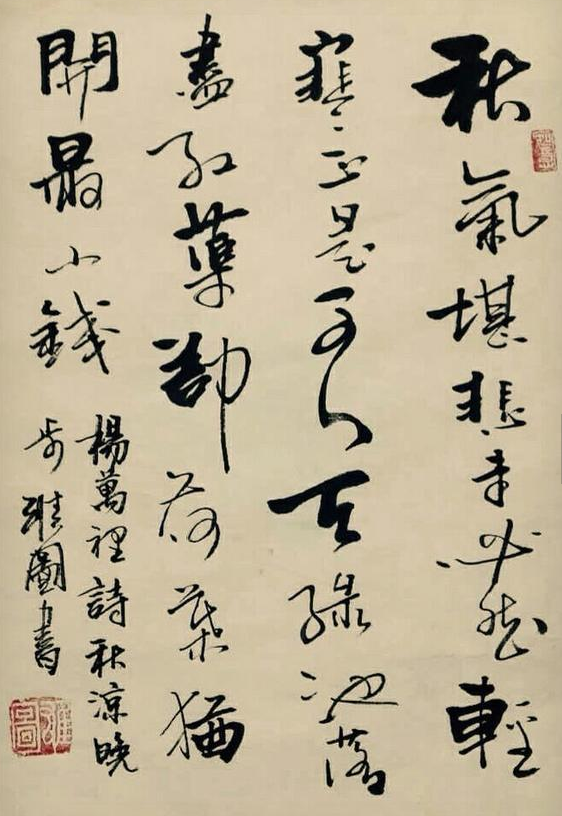 秋氣堪悲未必然輕
寒正是可人天綠池落
盡紅蕖卻荷葉猶
開最小錢
楊萬裡詩秋涼晚
步 圖書